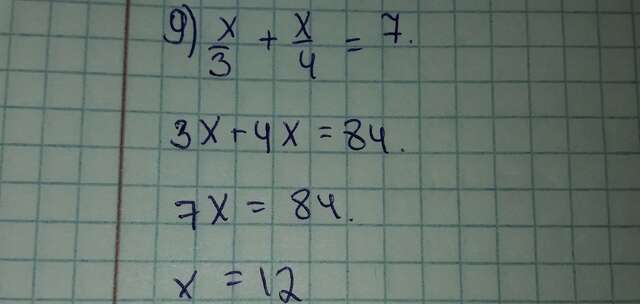 9) x/3 + x/4 = 7.
3x + 4x = 84.
7x = 84.
x = 12